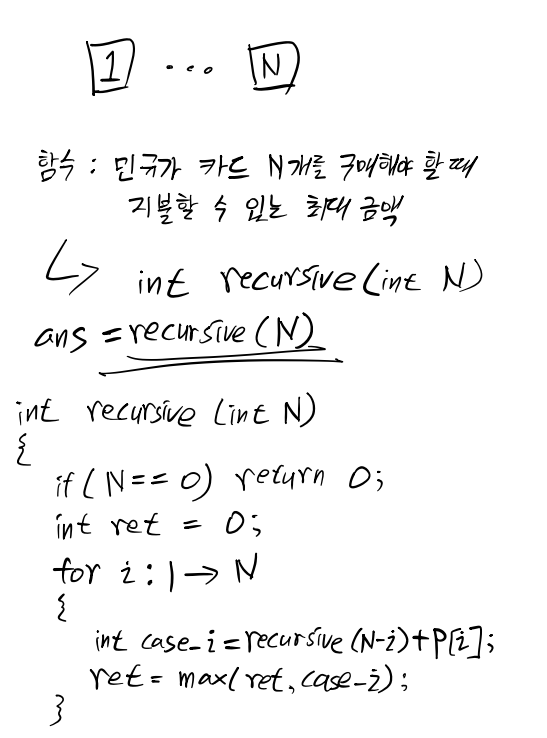 1 ... N
함수 : 민규가 카드 N개를 구매해야 할 때
지불할 수 있는 최대 금액
↳ int recursive(int N)
ans = recursive(N)
int recursive (int N)
{
if( N == 0) return 0;
int ret = 0;
for i : 1 → N
{
int case_i = recursive (N-i)+P[i];
ret = max( ret, case_i);
}